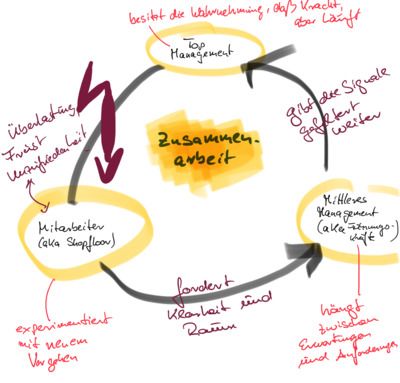 besitzt die Wahrnehmung, daß kracht,
aber läuft
Top
Management
Überlastung
Frust
Unzufriedenheit
Zusammen-
arbeit
gibt die Signale
gefiltert
weiter
Mitarbeiter
(aka Shopfloor)
Mittleres
Management
(aka Führungs-
kraft)
fordert
Klarheit und
Raum
experimentiert
mit neuem
Vorgehen
hängt
zwischen
Erwartungen
und Anforderungen